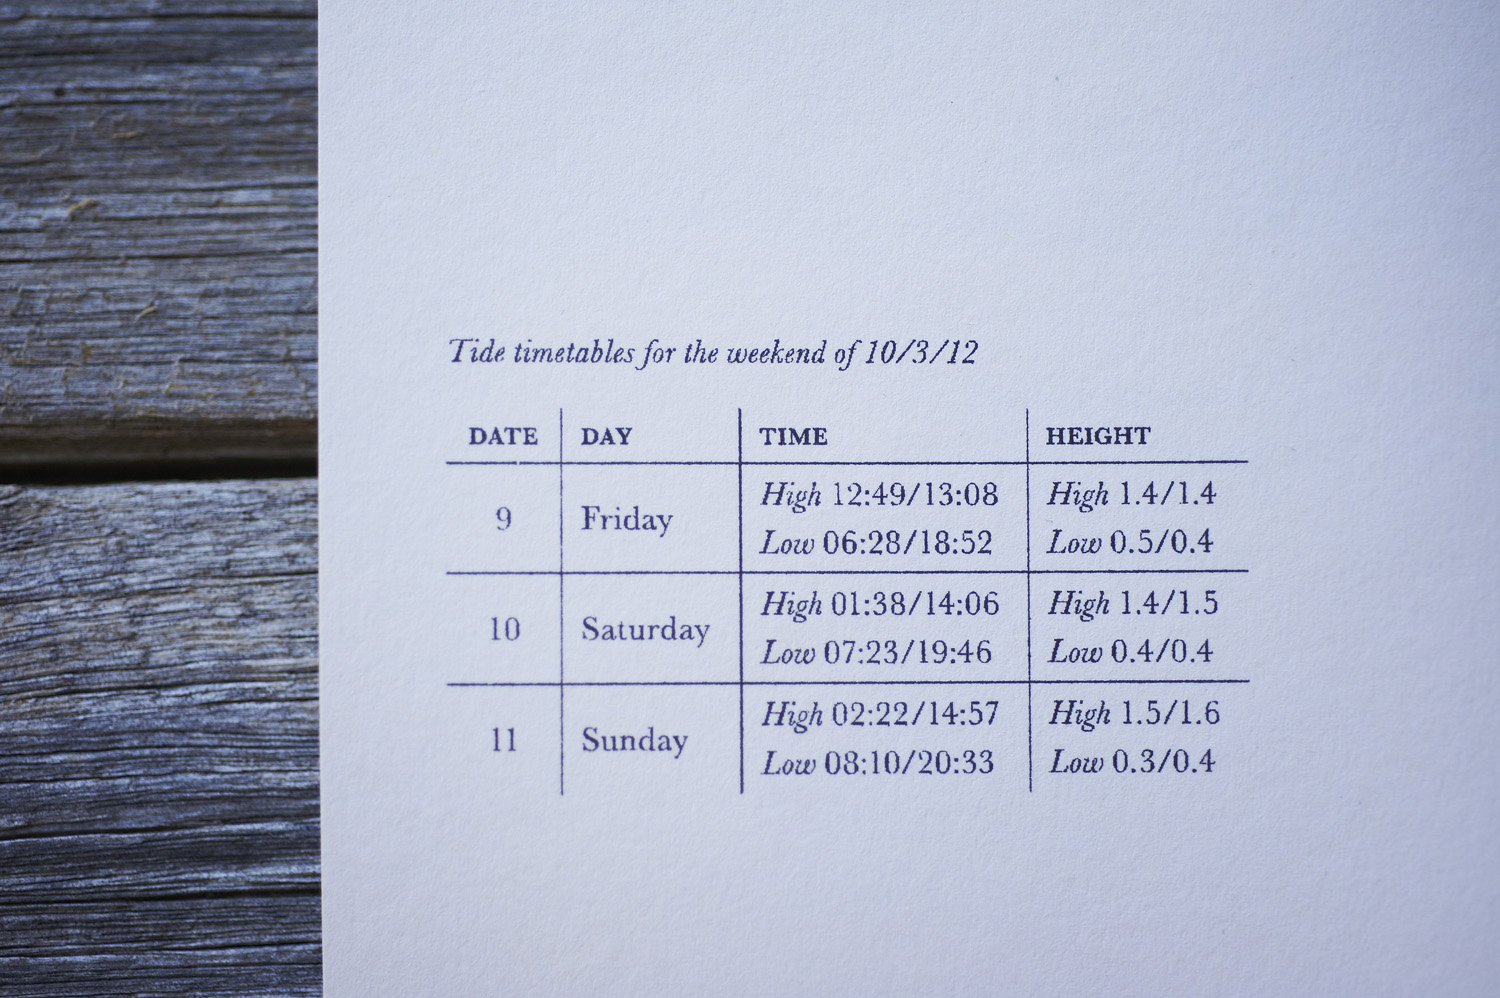 Tide timetables for the weekend of 10/3/12
DATE DAY TIME HEIGHT
9 Friday
High 12:49/13:08 High 1.4/1.4
Low 06:28/18:52 Low 0.5/0.4
10 Saturday
High 01:38/14:06 High 1.4/1.5
Low 07:23/19:46 Low 0.4/0.4
11 Sunday
High 02:22/14:57 High 1.5/1.6
Low 08:10/20:33 Low 0.3/0.4